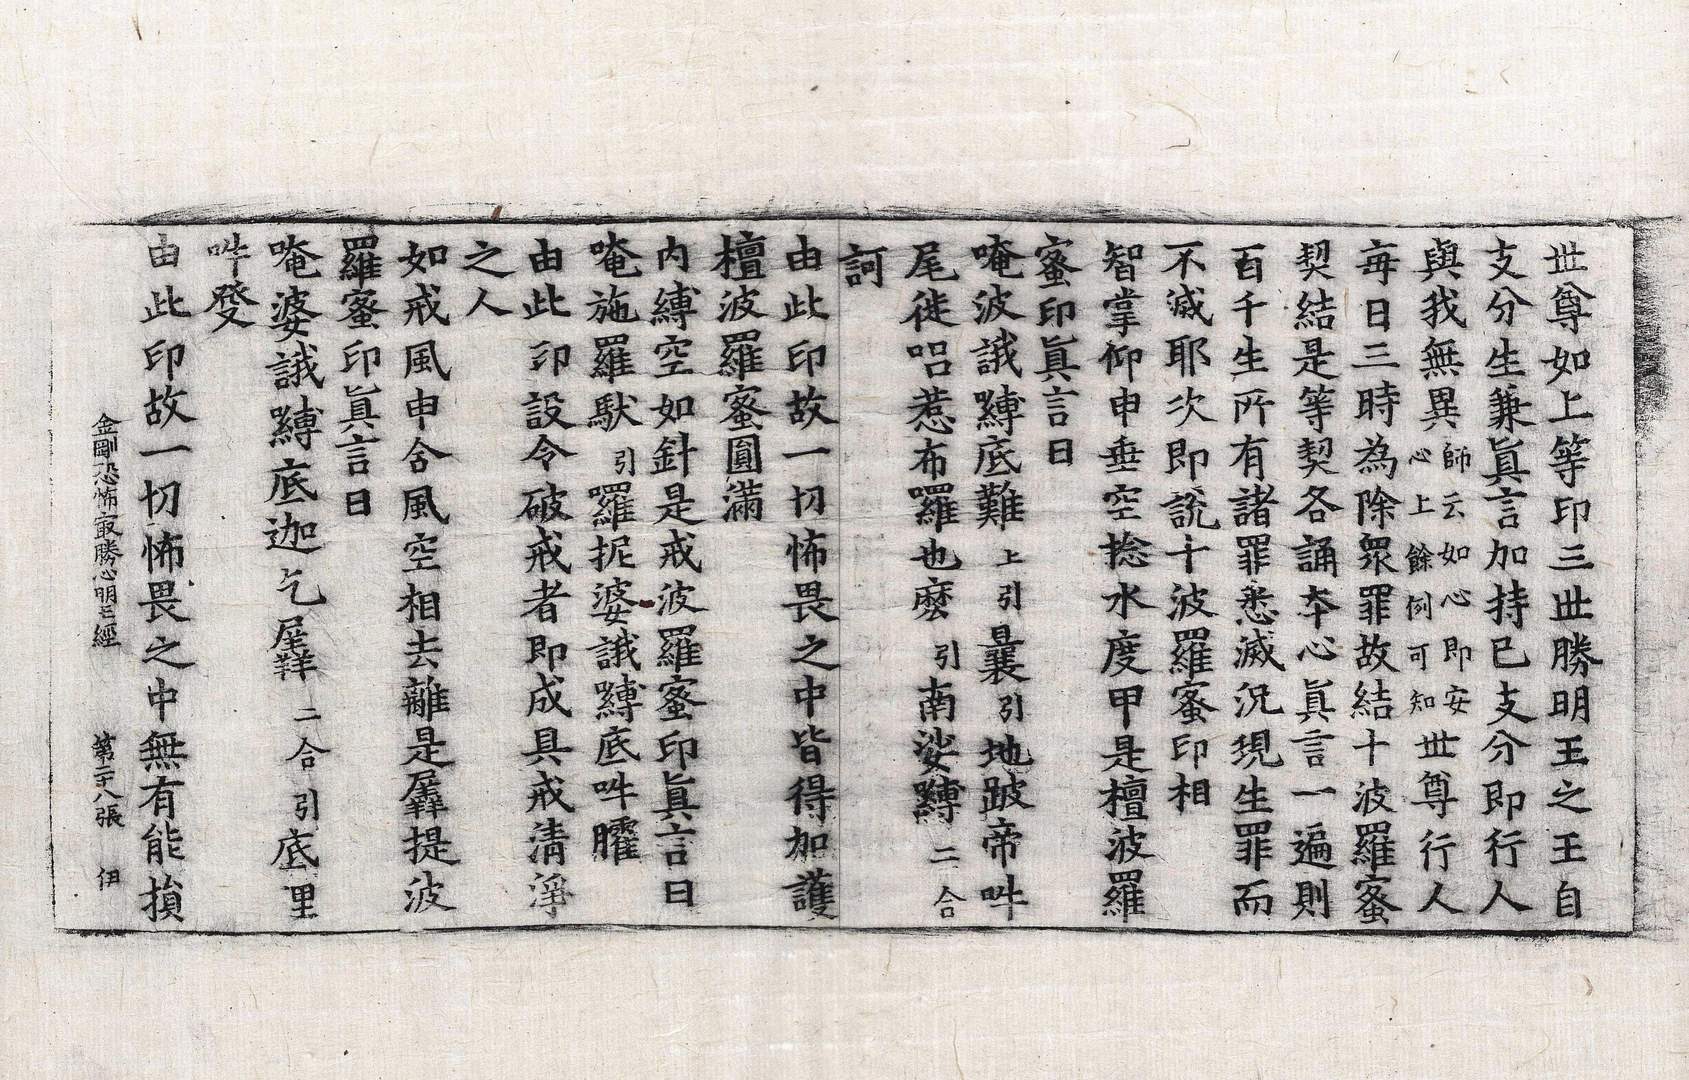 世尊如上等印三世勝明王之王自
支分生兼眞言加持已支分即行人
與我無異師云如心心即安心上餘例可知世尊行人
每日三時為除衆罪故結十波羅蜜
契結是等契各誦本心眞言一遍則
百千生所有諸罪悉滅況現生罪而
不滅耶次即說十波羅蜜印相
智掌仰申垂空捻水度甲是檀波羅
蜜印眞言曰
唵波誐嚩底難上引曩引地跛帝吽
尾徙呂惹布囉也麽引南娑嚩二合
訶
由此印故一切怖畏之中皆得加護
檀波羅蜜圓滿
內縛空如針是戒波羅蜜印眞言曰
唵施羅馱引囉抳婆誐嚩底吽䑏
由此印設令破戒者即成具戒淸淨
之人
如戒風申合風空相去離是羼提波
羅蜜印眞言曰
唵婆誐嚩底迦乞羼二合引底里
吽發
由此印故一切怖畏之中無有能損
金剛恐怖冣勝心明王經 第二十八張 伊